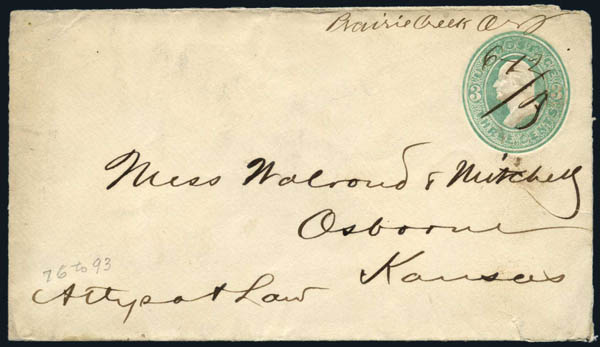 Prairie Creek
U.S. POSTAGE
THREE CENTS
6-12
Mess Walrond & Mitchell
Osborne
Kansas
76 to 93
Attys at Law